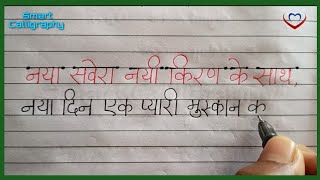 Smart
Calligraphy
नया सवेरा नयी किरण के साथ,
नया दिन एक प्यारी मुस्कान क